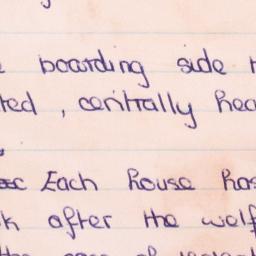 boarding side
ted, centrally hea
Each house has
k after the welf